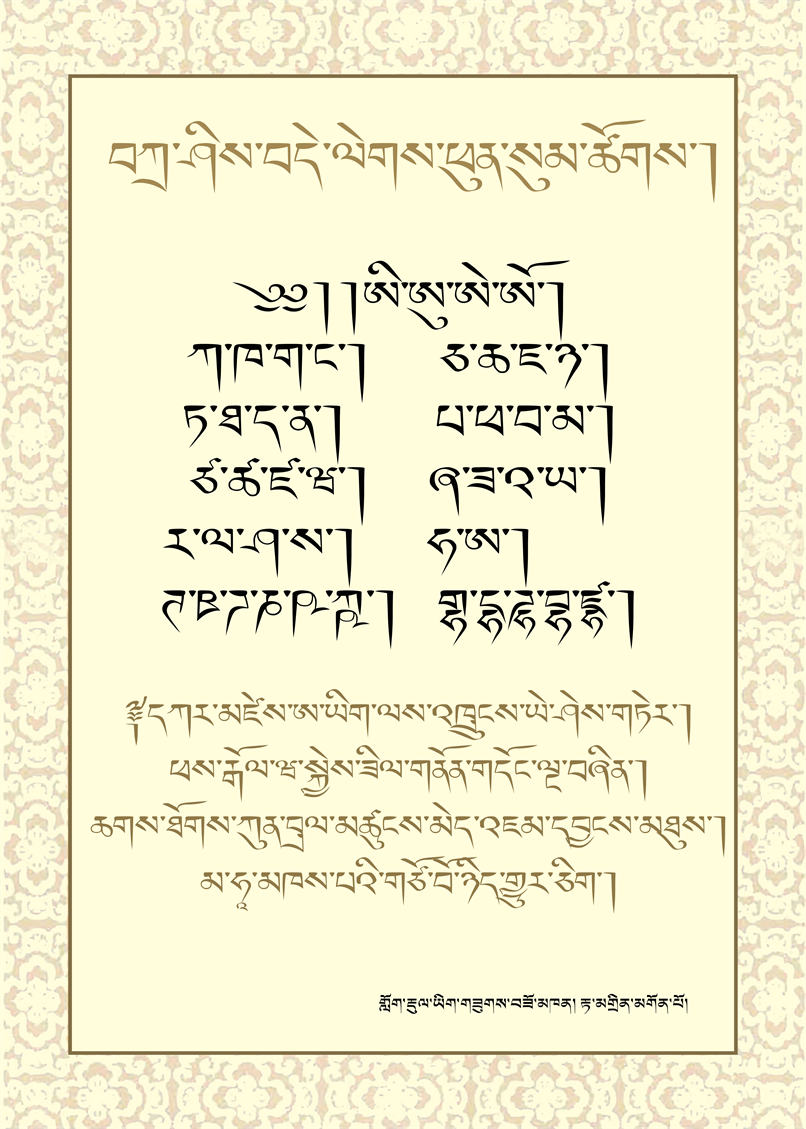 བཀྲ་ཤིས་བདེ་ལེགས་ཕུན་སུམ་ཚོགས་།
༄༅།།ཨི་ཨུ་ཨེ་ཨོ་།
ཀ་ཁ་ག་ང་། ཅ་ཆ་ཇ་ཉ་།
ཏ་ཐ་ད་ན་། པ་ཕ་བ་མ་།
ཙ་ཚ་ཛ་ཝ་། ཞ་ཟ་འ་ཡ་།
ར་ལ་ཤ་ས་། ཧ་ཨ་།
ཊ་ཋ་ཌ་ཎ་ཥ་ཀྵ་། གྷ་དྷ་ཌྷ་བྷ་ཛྷ་།
༈དཀར་མཛེས་ཨ་ཡིག་ལས་འཁྲུངས་ཡེ་ཤེས་གཏེར་།
ཕས་རྒོལ་ཝ་སྐྱེས་ཟིལ་གནོན་གདོང་ལྔ་བཞིན་།
ཆགས་ཐོགས་ཀུན་བྲལ་མཚུངས་མེད་འཇམ་དབྱངས་མཐུས་།
མ་ཧཱ་མཁས་པའི་གཙོ་བོ་ཉིད་གྱུར་ཅིག་།
གློག་རྡུལ་ཡིག་གཟུགས་བཟོ་མཁན། རྟ་མགྲིན་མགོན་པོ།